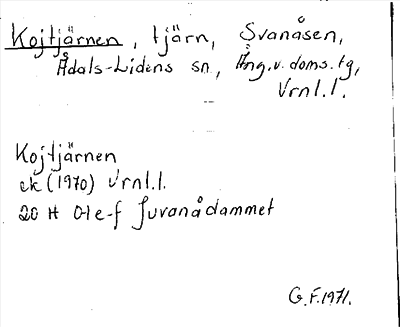 Kojtjärnen, tjärn, Svanåsen,
Ådals-Lidens sn, Ång.v.doms.tg,
Vrnl.l.
Kojtjärnen
ek (1970) Vrnl.l.
20 H 0-1 e-f Juvanådammet
G.F.1971.